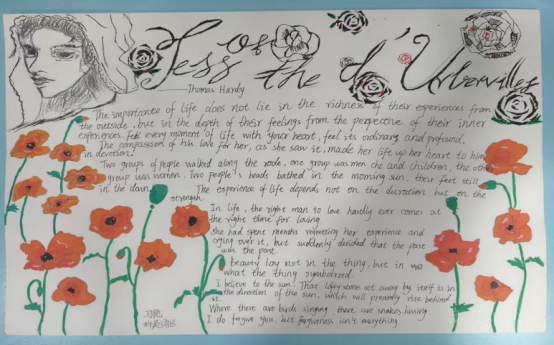 Tess of the d'Urbervilles
Thomas Hardy
The importance of life does not lie in the richness of their experiences from
the outside, but in the depth of their feelings from the perspective of their inner
experiences. Feel every moment of life with your heart, feel its ordinary and profound.
The compassion of his love for her, as she saw it, made her life up her heart to him
in devotion.
Two groups of people walked along the road, one group was men and children, the other
group was women. Two people's heads bathed in the morning sun, their feet still
in the dawn. The experience of life depends not on the duration, but on the
strength.
In life, the right man to love hardly ever comes at
the right time for loving.
She had spent months regretting her experience and
crying over it, but suddenly decided that the past
was the past.
beauty lay not in the thing, but in
what the thing symbolized.
I believe to the sun. That lofty stone set away by itself is in
the direction of the sun, which will presently rise behind
it.
Where there are birds singing there are snakes hissing
I do forgive you, but forgiveness isn't everything.